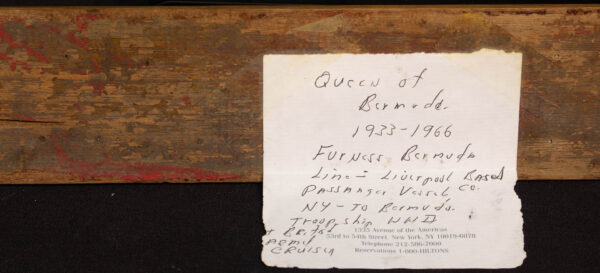 Queen of
Bermuda.
1933-1966
Furness Bermuda
Line - Liverpool Based
Passanger Vessel Co.
NY - To Bermuda.
Troop ship WWII
+ British
Armed
Cruiser
1335 Avenue of the Americas
53rd to 54th Street, New York, NY 10019-6078
Telephone 212-586-7000
Reservations 1-800-HILTONS